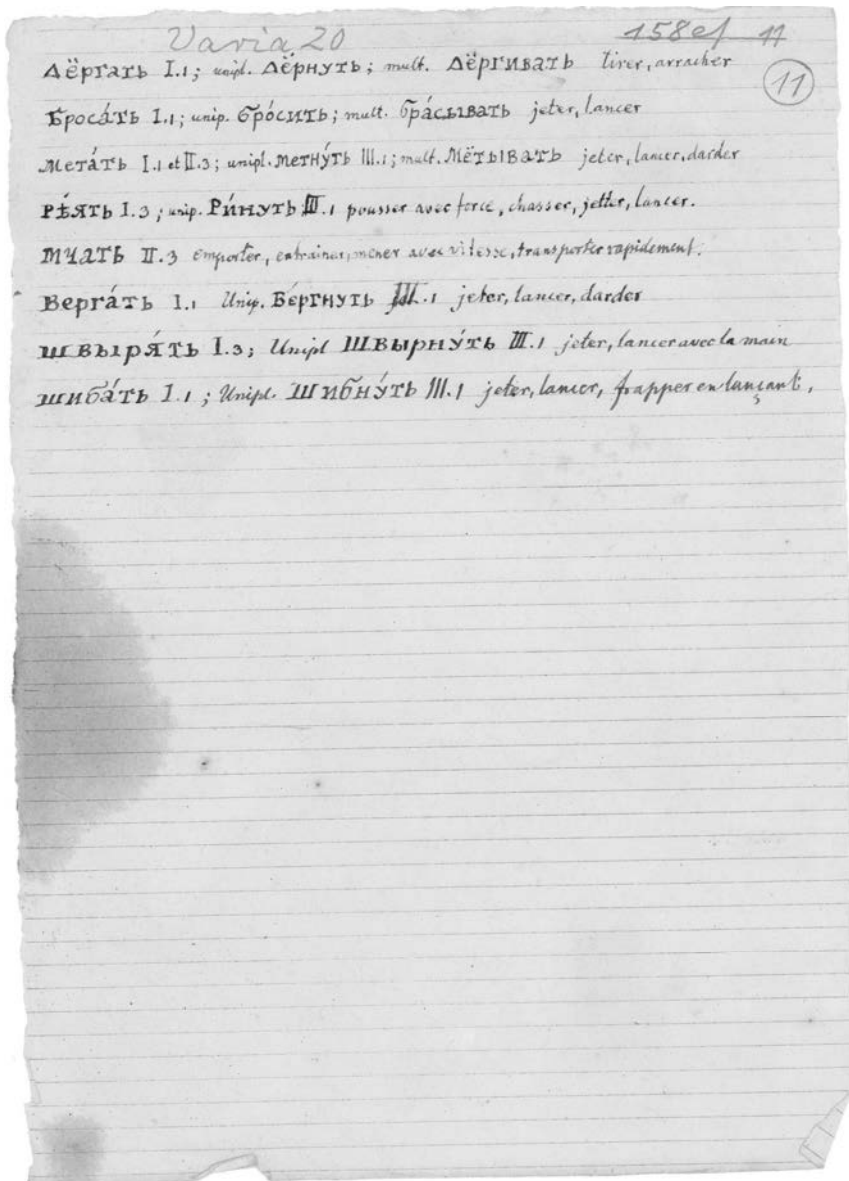 Varia 20
158ef 11
11
Дёргать I.1; unipl. Дёрнуть; mult. Дёргивать tirer, arracher
Броса́ть I.1; unip. бро́сить; mult. бра́сывать jeter, lancer
Мета́ть I.1 et II.3; unipl. метну́ть III.1; mult. Мётывать jeter, lancer, darder
Рѣ́ять I.3; unip. Ри́нуть III.1 pousser avec force, chasser, jetter, lancer.
Мчать II.3 emporter, entrainer, mener avec vitesse, transporter rapidement.
Верга́ть I.1 Unip. Ве́ргнуть III.1 jeter, lancer, darder
Швыря́ть I.3; Unipl Швырну́ть III.1 jeter, lancer avec la main
Шиба́ть I.1; Unipl. Шибну́ть III.1 jeter, lancer, frapper en lançant.